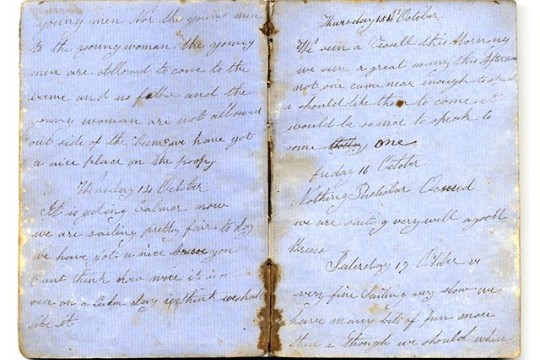 young men Nor the young men
to the young woman the young
men are allowed to come to the
and no and the
young woman are not allowed
out side of the we have got
a nice place on the poopy
14 October
It is getting Calmer now
we are sailing pretty fair to day
we have got a nice you
cant think how nice it is
on a day we think we shall
like it
Thursday 15th October
We seen a this Morning
we seen a great many this afternoon
not one came near enough to
a should like them to come it
would be to speak to
some one
friday 16 October
Nothing Occured
we are sailing very well a good
Breese
Saterday 17 October
very fine Sailing very slow we
have many bits of fun more
than a though we should when